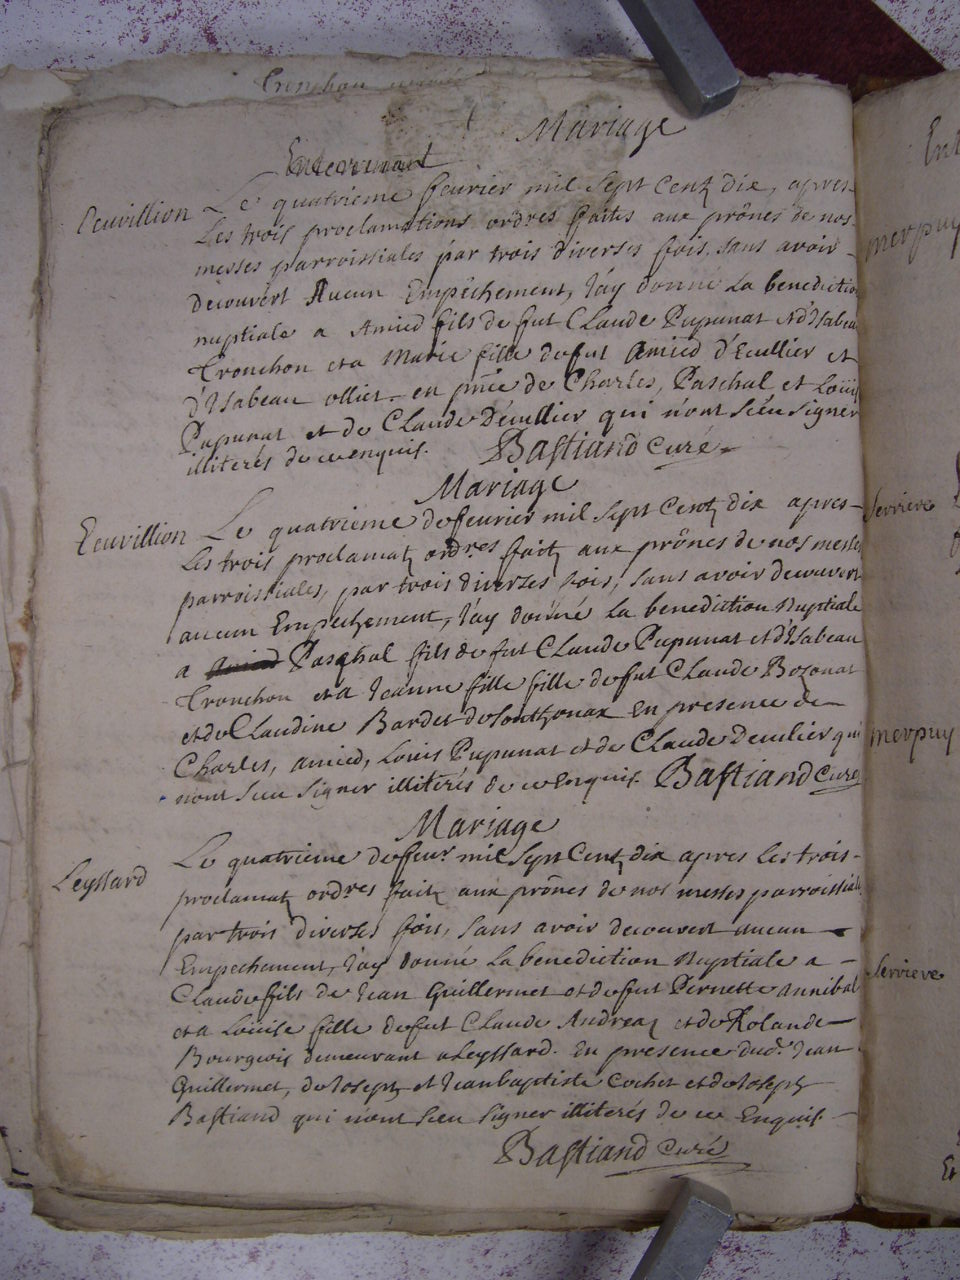 Tronchon
Mariage
Enterrement
Ecuvillion Le quatrieme fevrier mil sept Centz dix, apres
Les trois proclamations ordres faites aux prônes de nos
messes parroissiales par trois diverses fois, sans avoir
decouvert Aucun Empêchement, J'ay donné La benedictio
nuptiale a Amied fils de fut CLaude Pupunat et d'Isabea
Tronchon et a Marie fille de fut Amied d'Ecullier et
d'Isabeau ollier en pnce de Charles, Paschal et Louis
Pupunat et de CLaude Decullier qui n'ont sceu signer
illiterés de ce enquis. Bastiand Curé
Mariage
Ecuvillion Le quatrieme de feurier mil sept Centz dix apres
Les trois proclamatz ordres faitz aux prônes de nos messes
parroissiales, par trois diverses fois, sans avoir decouvert
aucun Empechement, J'ay donné La benediction Nuptiale
a Amied Paschal fils de fut CLaude Pupunat et d'Isabeau
Tronchon et a Jeanne fille fille de fut CLaude Bozonat
et de CLaudine Bardet de Sonthonax En presence de
Charles, amied, Louis Pupunat et de CLaude Deculier qui
n'ont sceu signer illiterés de ce Enquis. Bastiand Curé
Mariage
Leyssard Le quatrieme de feur. mil sept Centz dix apres les trois
proclamatz ordres faitz aux prônes de nos messes parroissiale
par trois diverses fois, sans avoir decouvert aucun
Empechement, J'ay donné La benediction Nuptiale a
CLaude fils de Jean Guillermet et de fut Pernette Annibal
et a Loüise fille de fut CLaude Andreaz et de Rolande
Bourgeois demeurant a Leyssard. En presence dud. Jean
Guillermet, de Joseph et Jean baptiste Cochet et de Joseph
Bastiand qui n'ont sceu signer illiterés de ce Enquis.
Bastiand Curé
merpuy
Serriere
merpuy
Serriere